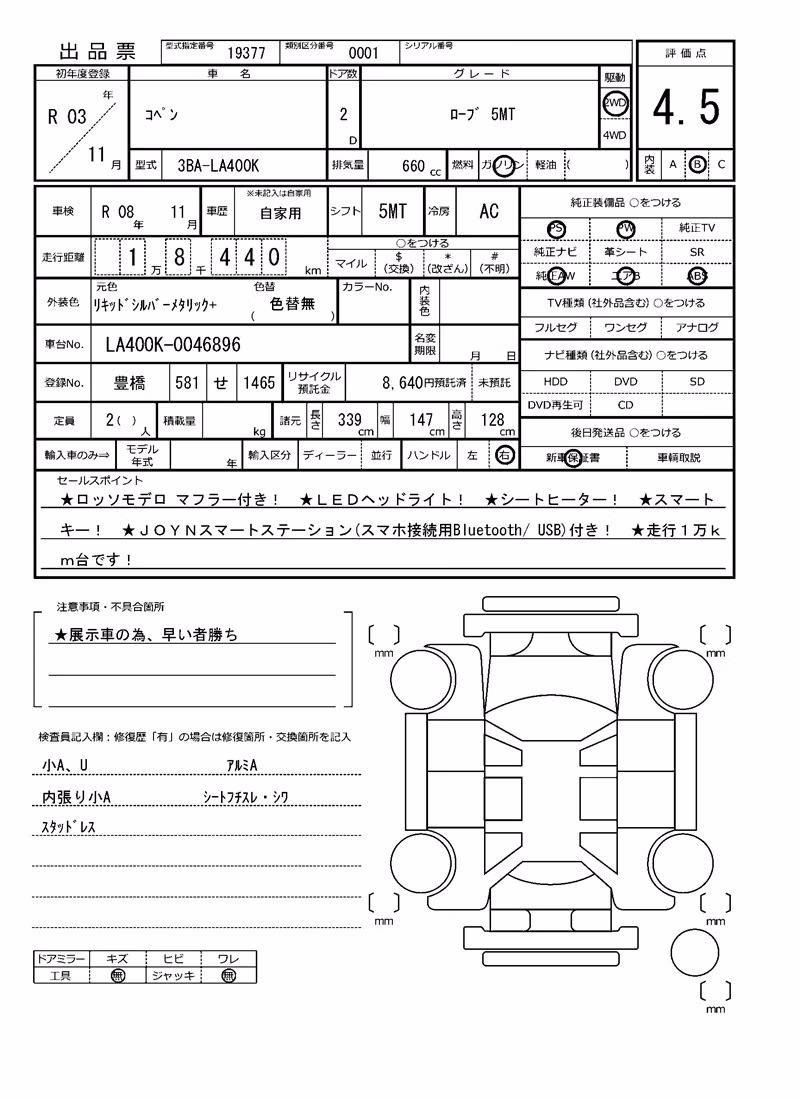 出品票 型式指定番号 19377 類別区分番号 0001 シリアル番号
評価点
4.5
内装 A B C
初年度登録 車名 ドア数 グレード 駆動
R 03 年 11 月 コペン 2 D ローブ 5MT 2WD 4WD
型式 3BA-LA400K 排気量 660 cc 燃料 ガソリン 軽油 ( )
車検 R 08 年 11 月 車歴 ※未記入は自家用 自家用 シフト 5MT 冷房 AC
走行距離 1 万 8 千 4 4 0 km ○をつける
マイル $ (交換) * (改ざん) # (不明)
外装色 元色 リキッドシルバーメタリック+ 色替 ( 色替無 ) カラーNo. 内装色
車台No. LA400K-0046896 名変期限 月 日
登録No. 豊橋 581 せ 1465 リサイクル預託金 8,640円預託済 未預託
定員 2( ) 人 積載量 kg 諸元 長さ 339 cm 幅 147 cm 高さ 128 cm
輸入車のみ⇒ モデル年式 年 輸入区分 ディーラー 並行 ハンドル 左 右
純正装備品 ○をつける
PS PW 純正TV
純正ナビ 革シート SR
純正AW エアB ABS
TV種類(社外品含む)○をつける
フルセグ ワンセグ アナログ
ナビ種類(社外品含む)○をつける
HDD DVD SD
DVD再生可 CD
後日発送品 ○をつける
新車保証書 車輌取説
セールスポイント
★ロッソモデロ マフラー付き! ★LEDヘッドライト! ★シートヒーター! ★スマート
キー! ★JOYNスマートステーション(スマホ接続用Bluetooth/ USB)付き! ★走行1万k
m台です!
注意事項・不具合箇所
★展示車の為、早い者勝ち
検査員記入欄:修復歴「有」の場合は修復箇所・交換箇所を記入
小A、U アルミA
内張り小A シートフチスレ・シワ
スタッドレス
ドアミラー キズ ヒビ ワレ
工具 無 ジャッキ 無
mm mm
mm mm
mm